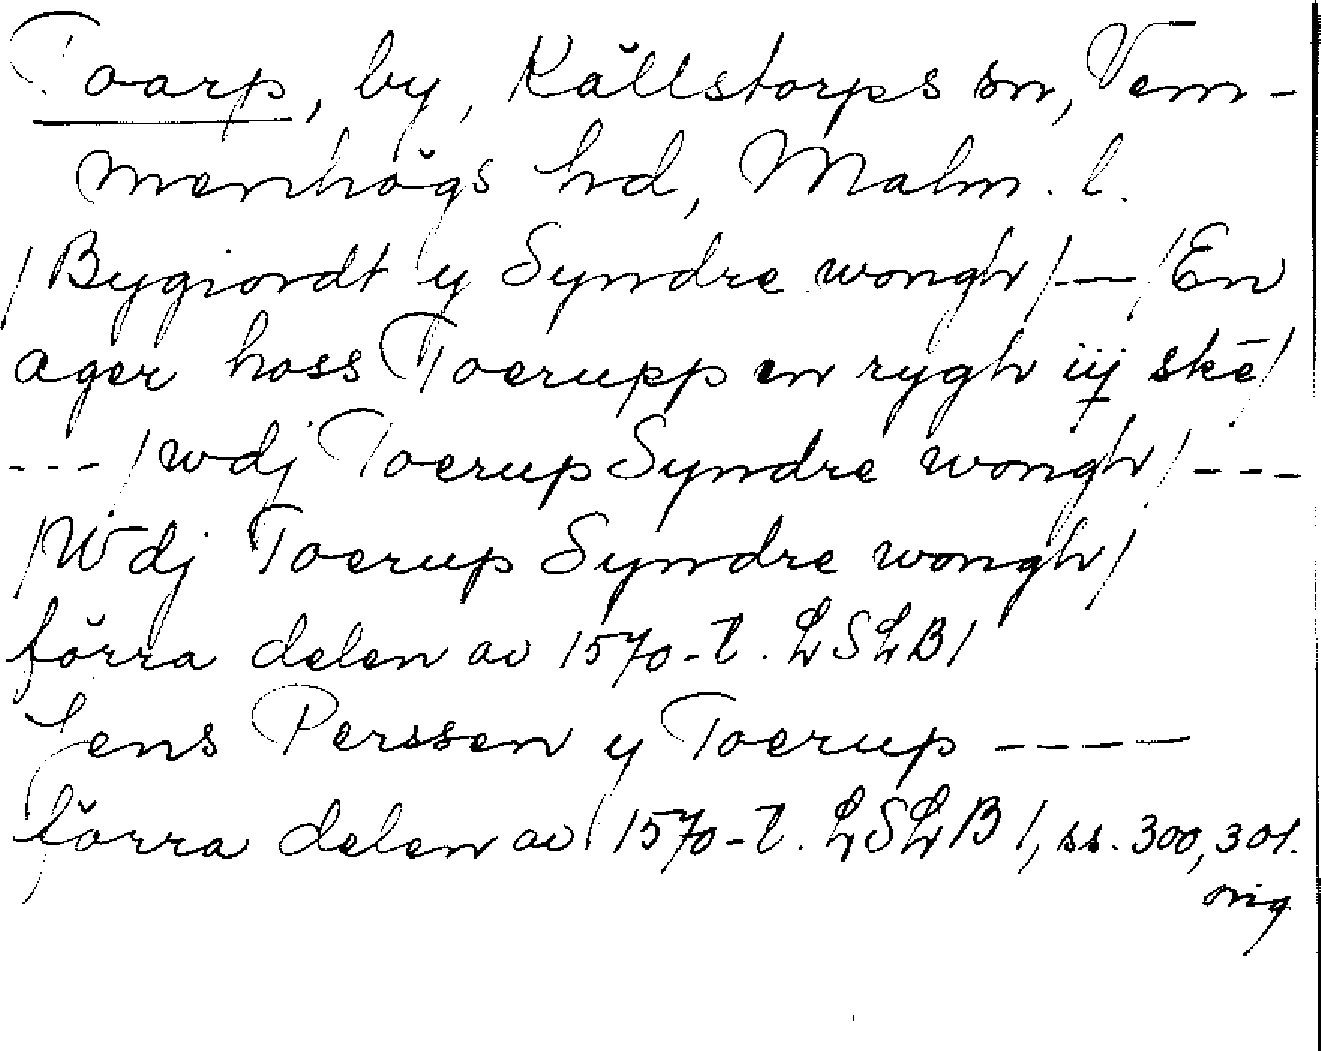 Toarp, by, Källstorps sn, Vem-
menhögs hd, Malm. l.
/Bygiordt y Syndre wongh/--/En
ager hoss Toerupp en rygh iij skē/
---/wdj Toerup Syndre wongh/---
/Wdj Toerup Syndre wongh/
förra delen av 1570-t. LSLB 1
Jens Perssen y Toerup ----
förra delen av 1570-t. LSLB 1, ss. 300, 301.
orig